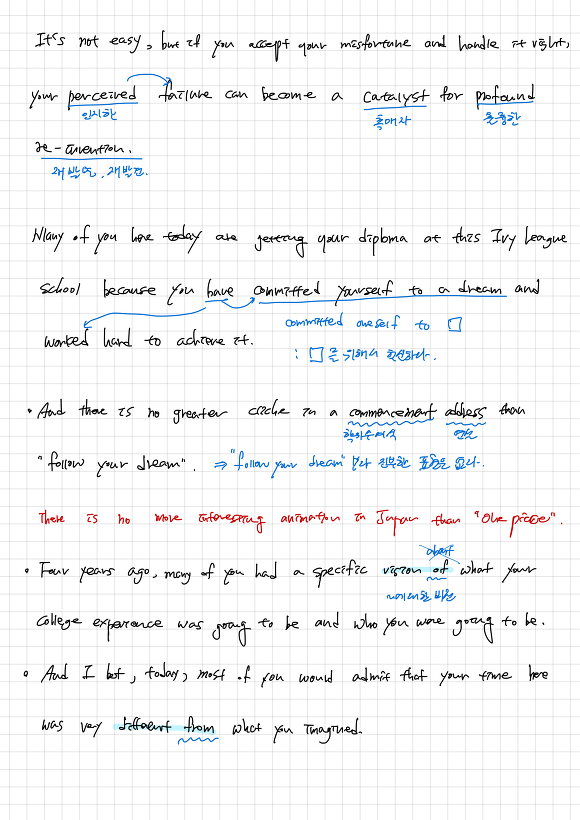 It's not easy, but if you accept your misfortune and handle it right,
your perceived failure can become a catalyst for profound
인지한 촉매자 훌륭한
re-invention.
재발명, 재발견.
Many of you here today are getting your diploma at this Ivy League
school because you have committed yourself to a dream and
worked hard to achieve it. committed oneself to □
: □를 위해서 헌신하다.
• And there is no greater cliche in a commencement address than
학위수여식 연설
"follow your dream". ⇒ "follow your dream" 보다 진부한 표현은 없다.
There is no more interesting animation in Japan than "One piece".
about
• Four years ago, many of you had a specific vision of what your
~에 대한 비전
college experience was going to be and who you were going to be.
• And I bet, today, most of you would admit that your time here
was very different from what you imagined.